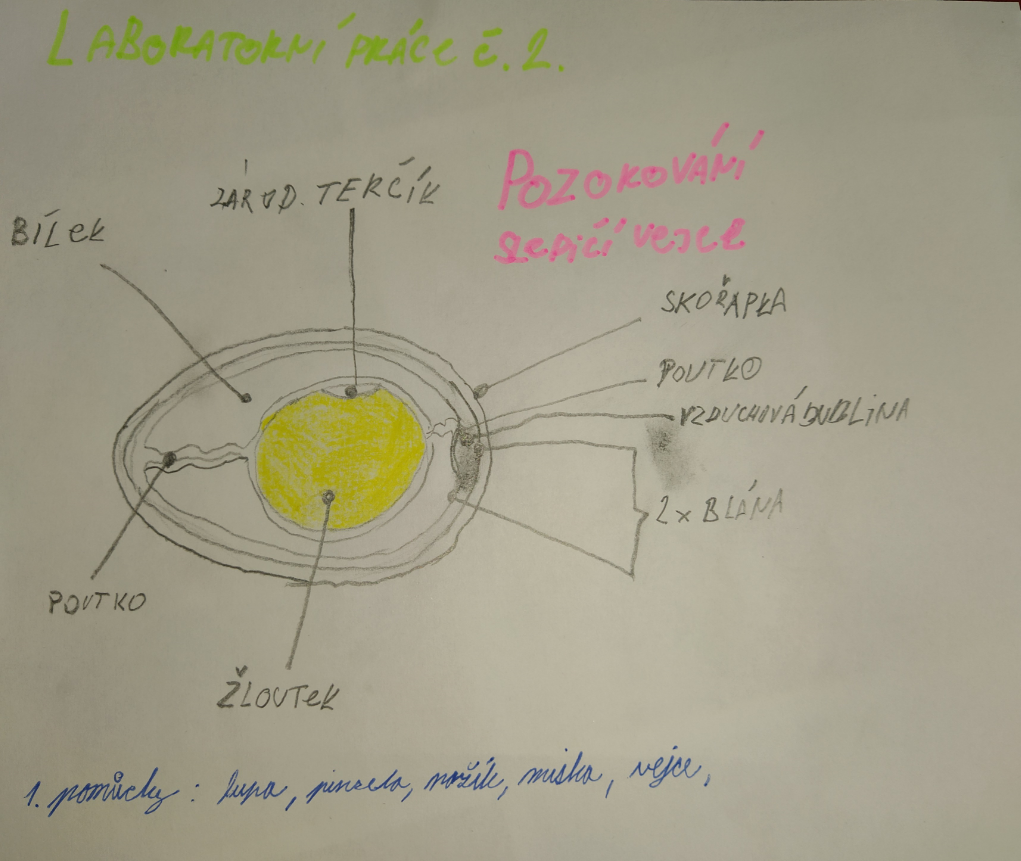 LABORATORNÍ PRÁCE Č. 2.
POZOROVÁNÍ
SLEPIČÍ VEJCE
ZÁROD. TERČÍK
BÍLEK
SKOŘÁPKA
POUTKO
VZDUCHOVÁ BUBLINA
2 x BLÁNA
POUTKO
ŽLOUTEK
1. pomůcky : lupa, pinzeta, nožík, miska, vejce,